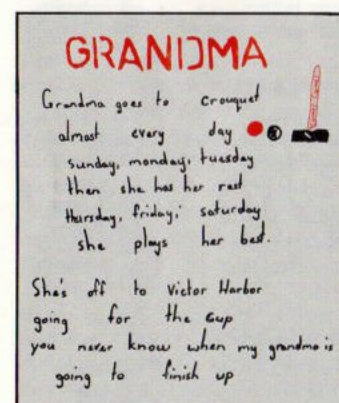 GRANDMA
Grandma goes to Crouquet
almost every day
sunday, monday, tuesday
then she has her rest
thursday, friday, saturday
she plays her best.
She's off to Victor Harbor
going for the Cup
you never know when my grandma is
going to finish up